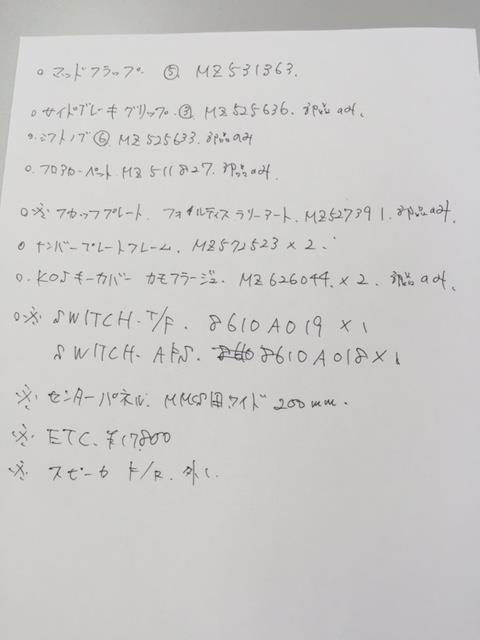 ○マッドフラップ ⑤ MZ531363.
○サイドブレーキグリップ. ③ MZ525636. 部品のみ.
○シフトノブ ⑥ MZ525633. 部品のみ
○フロアカーペット. MZ511827. 部品のみ.
○※ フカップププレート. フォルティス ラリーアート. MZ527391. 部品のみ.
○ナンバープレートフレーム. MZ572523 × 2.
○.KOSキーカバー カモフラージュ. MZ626044. × 2. 部品のみ.
○※ SWITCH. T/F. 8610A019 × 1
SWITCH. AFS. 8610A018 × 1
※. センターパネル. MMCS用. ワイド 200mm.
※. ETC. ¥17800
※. スピーカ F/R. 外し.